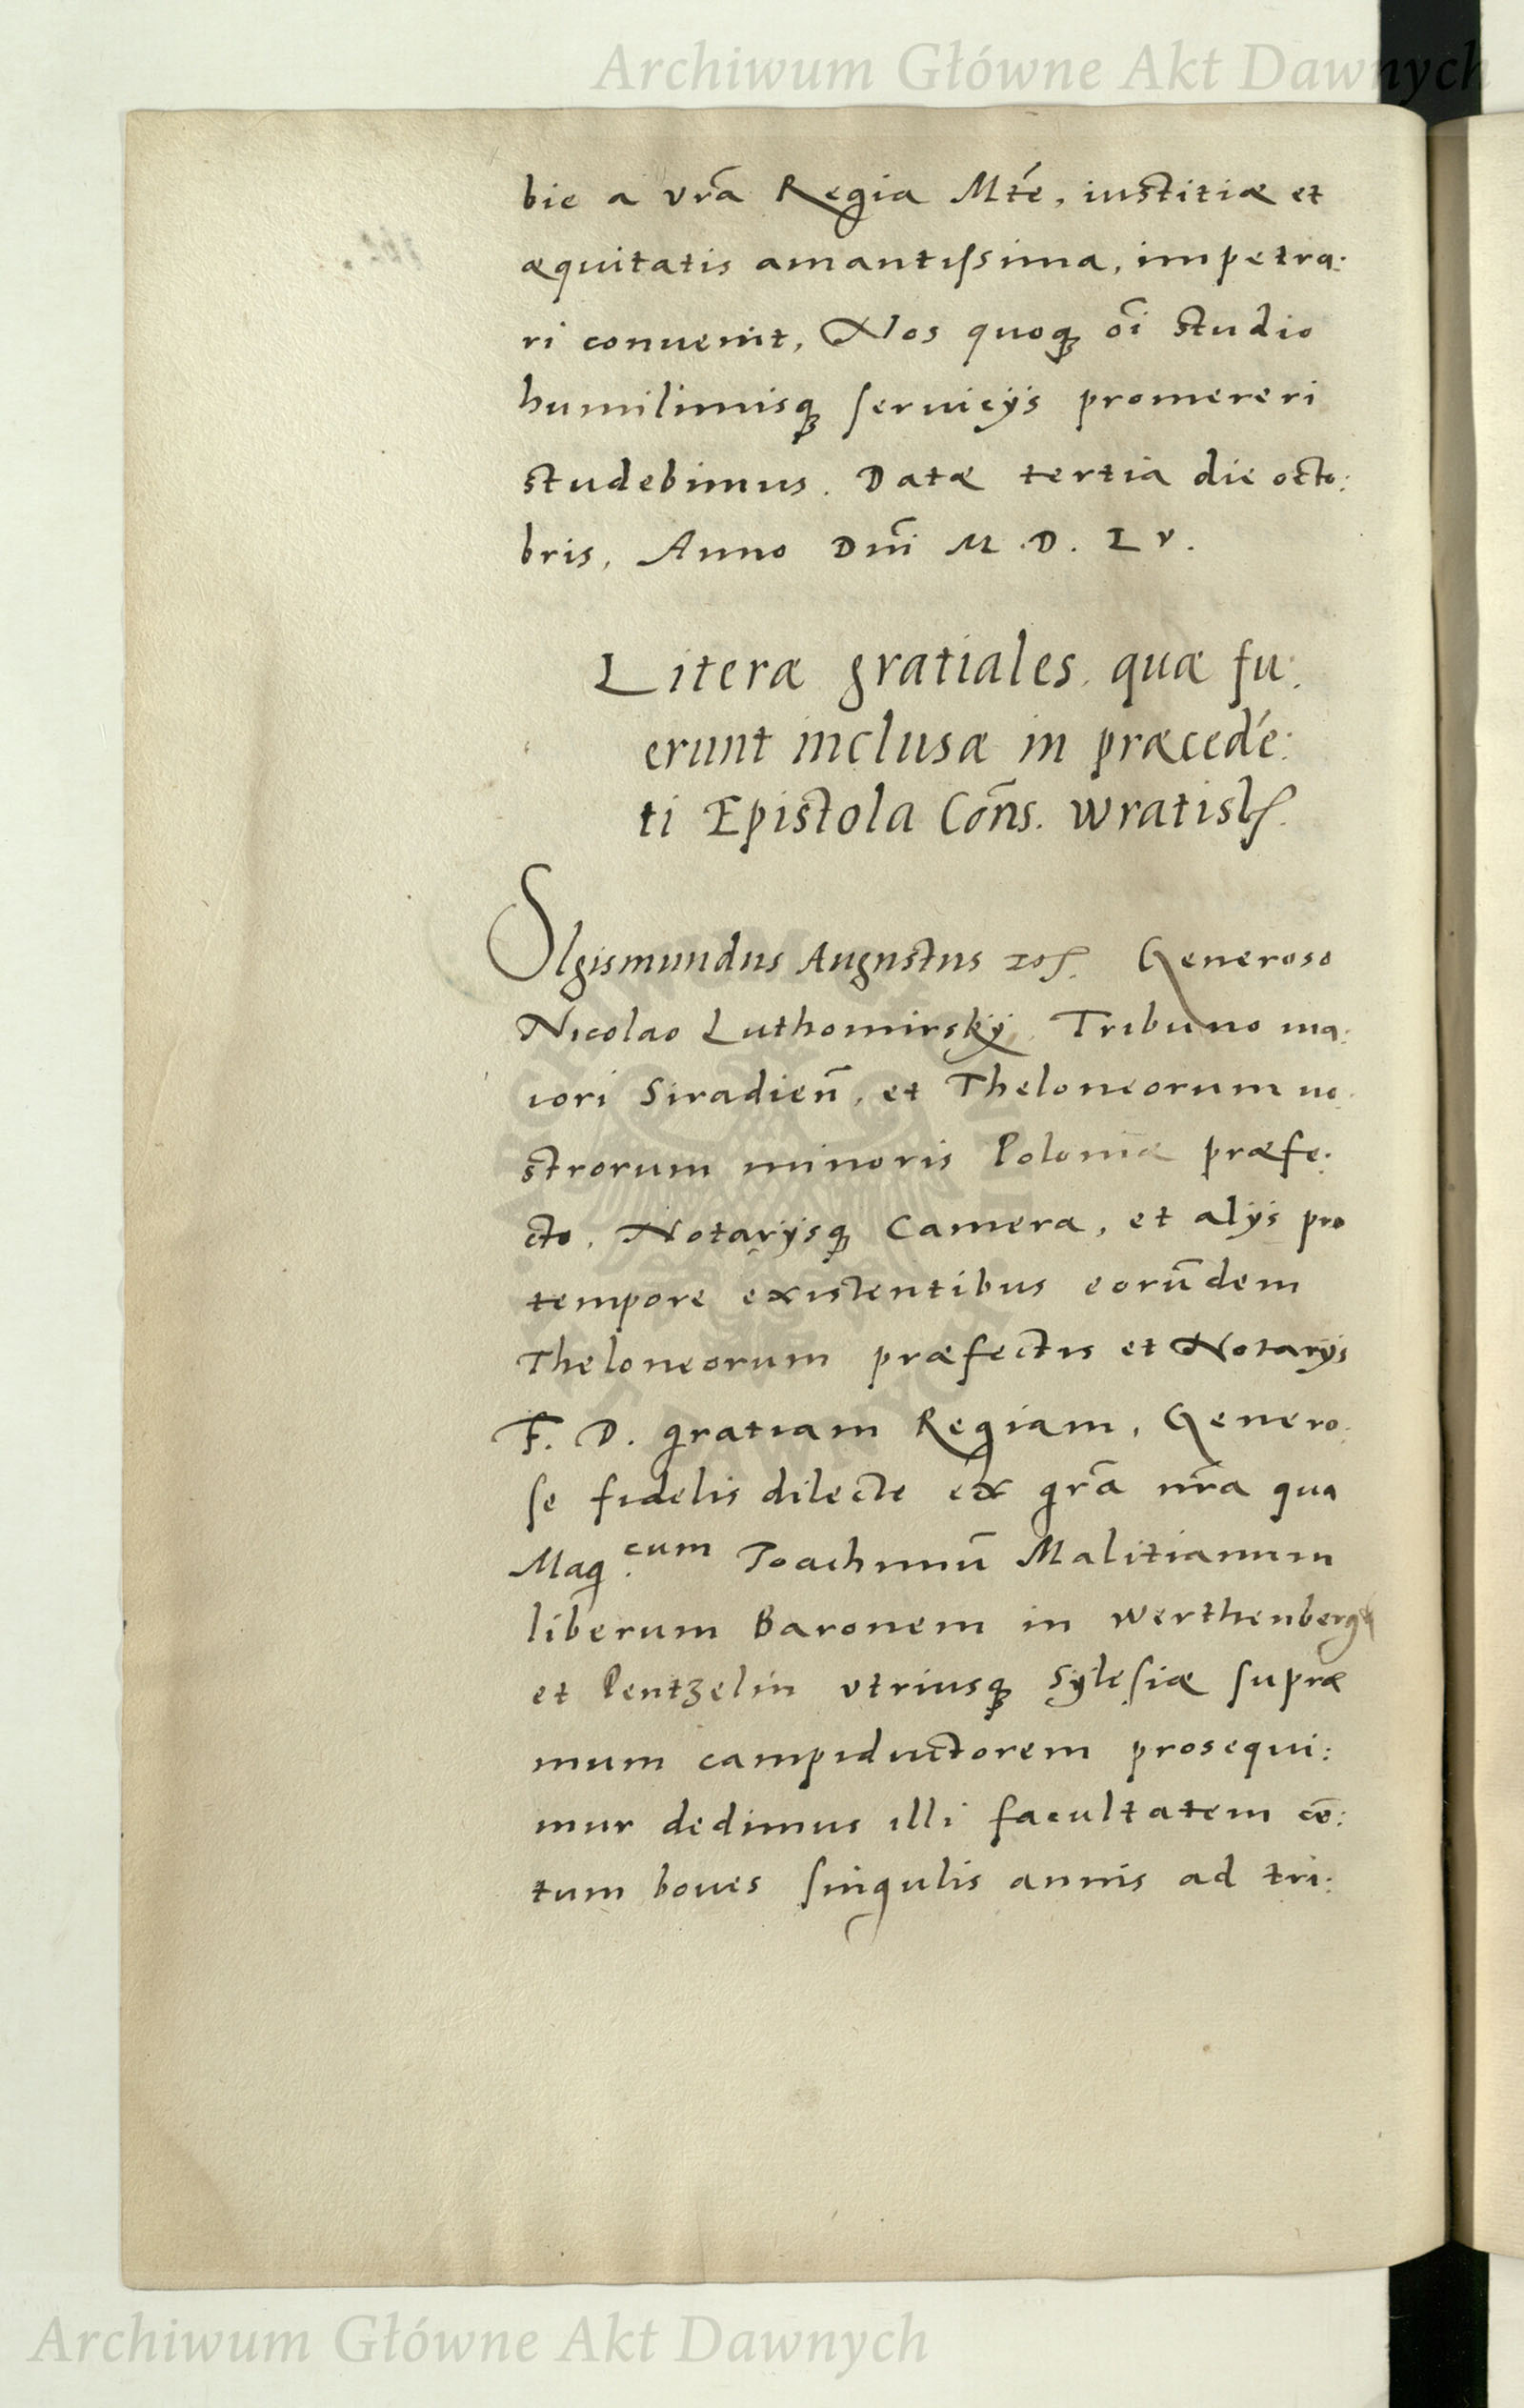 Archiwum Główne Akt Dawnych
bie a vrã Regia Mte, iustitiæ et
æquitatis amantissima, impetra:
ri conuenit, Nos quoq; oi studio
humilimisq; seruicijs promereri
studebimus. Datæ tertia die octo:
bris, Anno Dni M.D.Lv.
Literæ gratiales, quæ fu:
erunt inclusæ in præcedé:
ti Epistola Cons. Wratisl.
SIgismundus Augustus Generoso
Nicolao Luthomirsky, Tribuno ma:
iori Siradien, et Theloneorum no:
strorum minoris Poloniæ præfe:
cto, Notarijsq; Cameræ, et alijs pro
tempore existentibus eorũdem
Theloneorum præfectis et Notarijs
F. D. gratiam Regiam, Genero:
se fidelis dilecte ex grã nrã qua
Mag.cum Joachimũ Malitianum
liberum Baronem in Werthenberg
et Pentzelin vtriusq; Sylesiæ supræ
mum campiductorem prosequi:
mur dedimus illi facultatem cẽ:
tum boues singulis annis ad tri:
Archiwum Główne Akt Dawnych